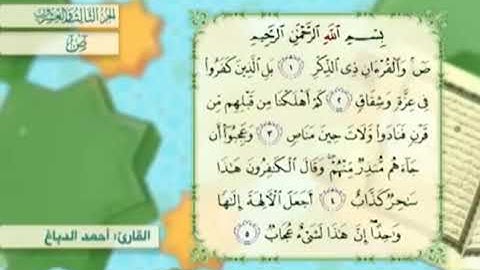 الجزء الثالث والعشرون
ص
بِسْمِ اللَّهِ الرَّحْمَٰنِ الرَّحِيمِ
صٓ وَالْقُرْءَانِ ذِى الذِّكْرِ ١ بَلِ الَّذِينَ كَفَرُوا۟
فِى عِزَّةٍ وَشِقَاقٍ ٢ كَمْ أَهْلَكْنَا مِن قَبْلِهِم مِّن
قَرْنٍ فَنَادَوا۟ وَّلَاتَ حِينَ مَنَاصٍ ٣ وَعَجِبُوٓا۟ أَن
جَآءَهُم مُّنذِرٌ مِّنْهُمْ وَقَالَ الْكَٰفِرُونَ هَٰذَا
سَٰحِرٌ كَذَّابٌ ٤ أَجَعَلَ الْءَالِهَةَ إِلَٰهًا
وَٰحِدًا إِنَّ هَٰذَا لَشَىْءٌ عُجَابٌ ٥
القارئ: أحمد الدباغ